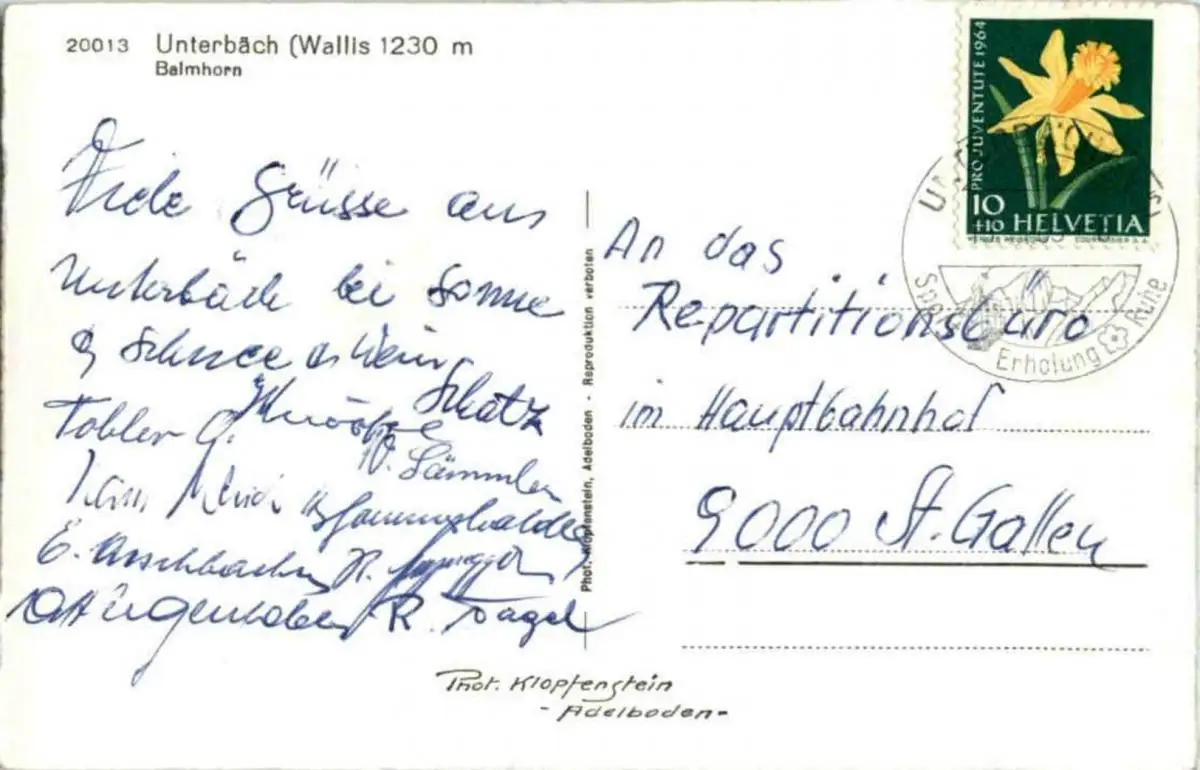 20013 Unterbäch (Wallis 1230 m
Balmhorn
Viele Grüsse aus
Unterbäch bei Sonne
& Schnee & Wein
Schatz
Tobler G.
W. Sämmler
E. Aeschbacher H.
R. Vogel
Phot. Klopfenstein, Adelboden - Reproduktion verboten
PRO JUVENTUTE 1964
10
+10 HELVETIA
Erholung
Ruhe
An das
Repartitionsbüro
im Hauptbahnhof
9000 St. Gallen
Phot. Klopfenstein
- Adelboden -